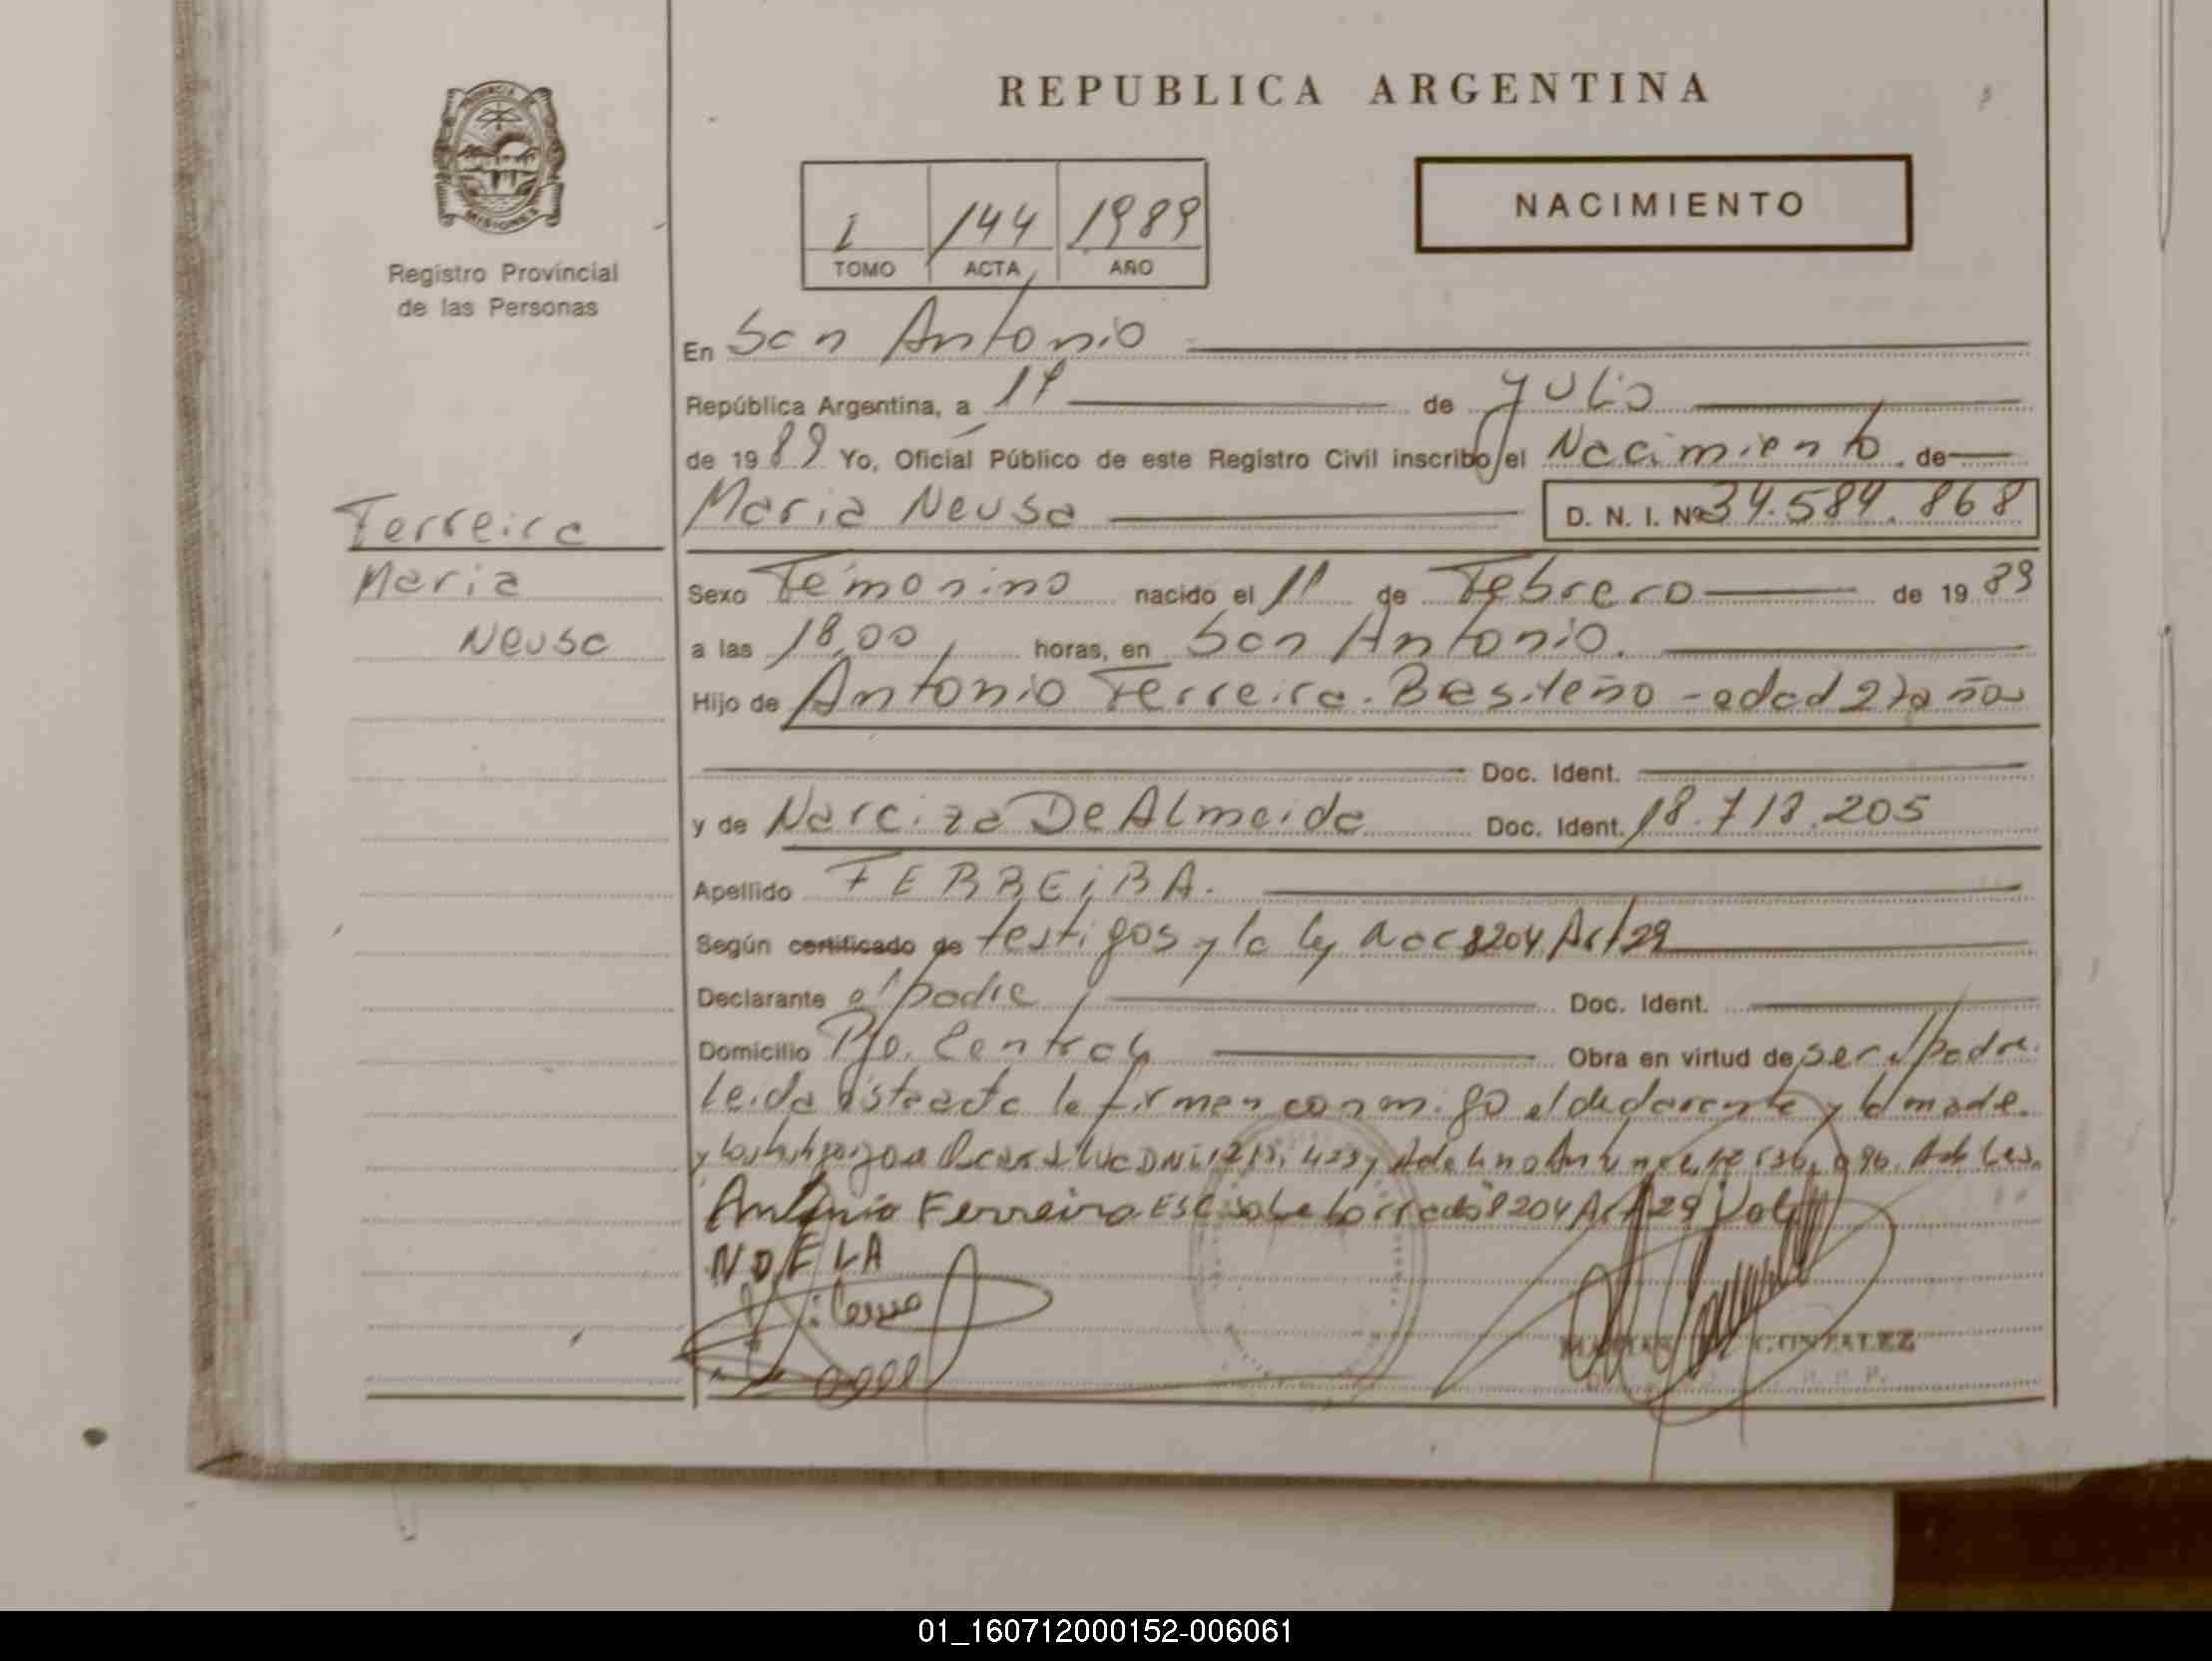 REPUBLICA ARGENTINA
PROVINCIA
MISIONES
Registro Provincial
de las Personas
1 144 1989
TOMO ACTA AÑO
NACIMIENTO
En San Antonio
República Argentina, a de Julio
de 1989 Yo, Oficial Público de este Registro Civil inscribo el Nacimiento de
Ferreira
Maria
Neusa
Maria Neusa D. N. I. Nº 34.584.868
Sexo Femenino nacido el 11 de Febrero de 1989
a las 18,00 horas, en San Antonio.
Hijo de Antonio Ferreira. Brasileño - edad 27 años
Doc. Ident.
y de Narciza De Almeida Doc. Ident. 18.713.205
Apellido FERREIRA.
Según certificado de testigos y la ley Nac 8204 Art 29
Declarante el padre Doc. Ident.
Domicilio Pje. Central Obra en virtud de ser el padre.
Leida esta acta la firman conmigo el declarante y la madre
y los testigos DNI
Antonio Ferreira Esc sobre borrado 8204 Art 29 Vale
NOELA
GONZALEZ
01_160712000152-006061